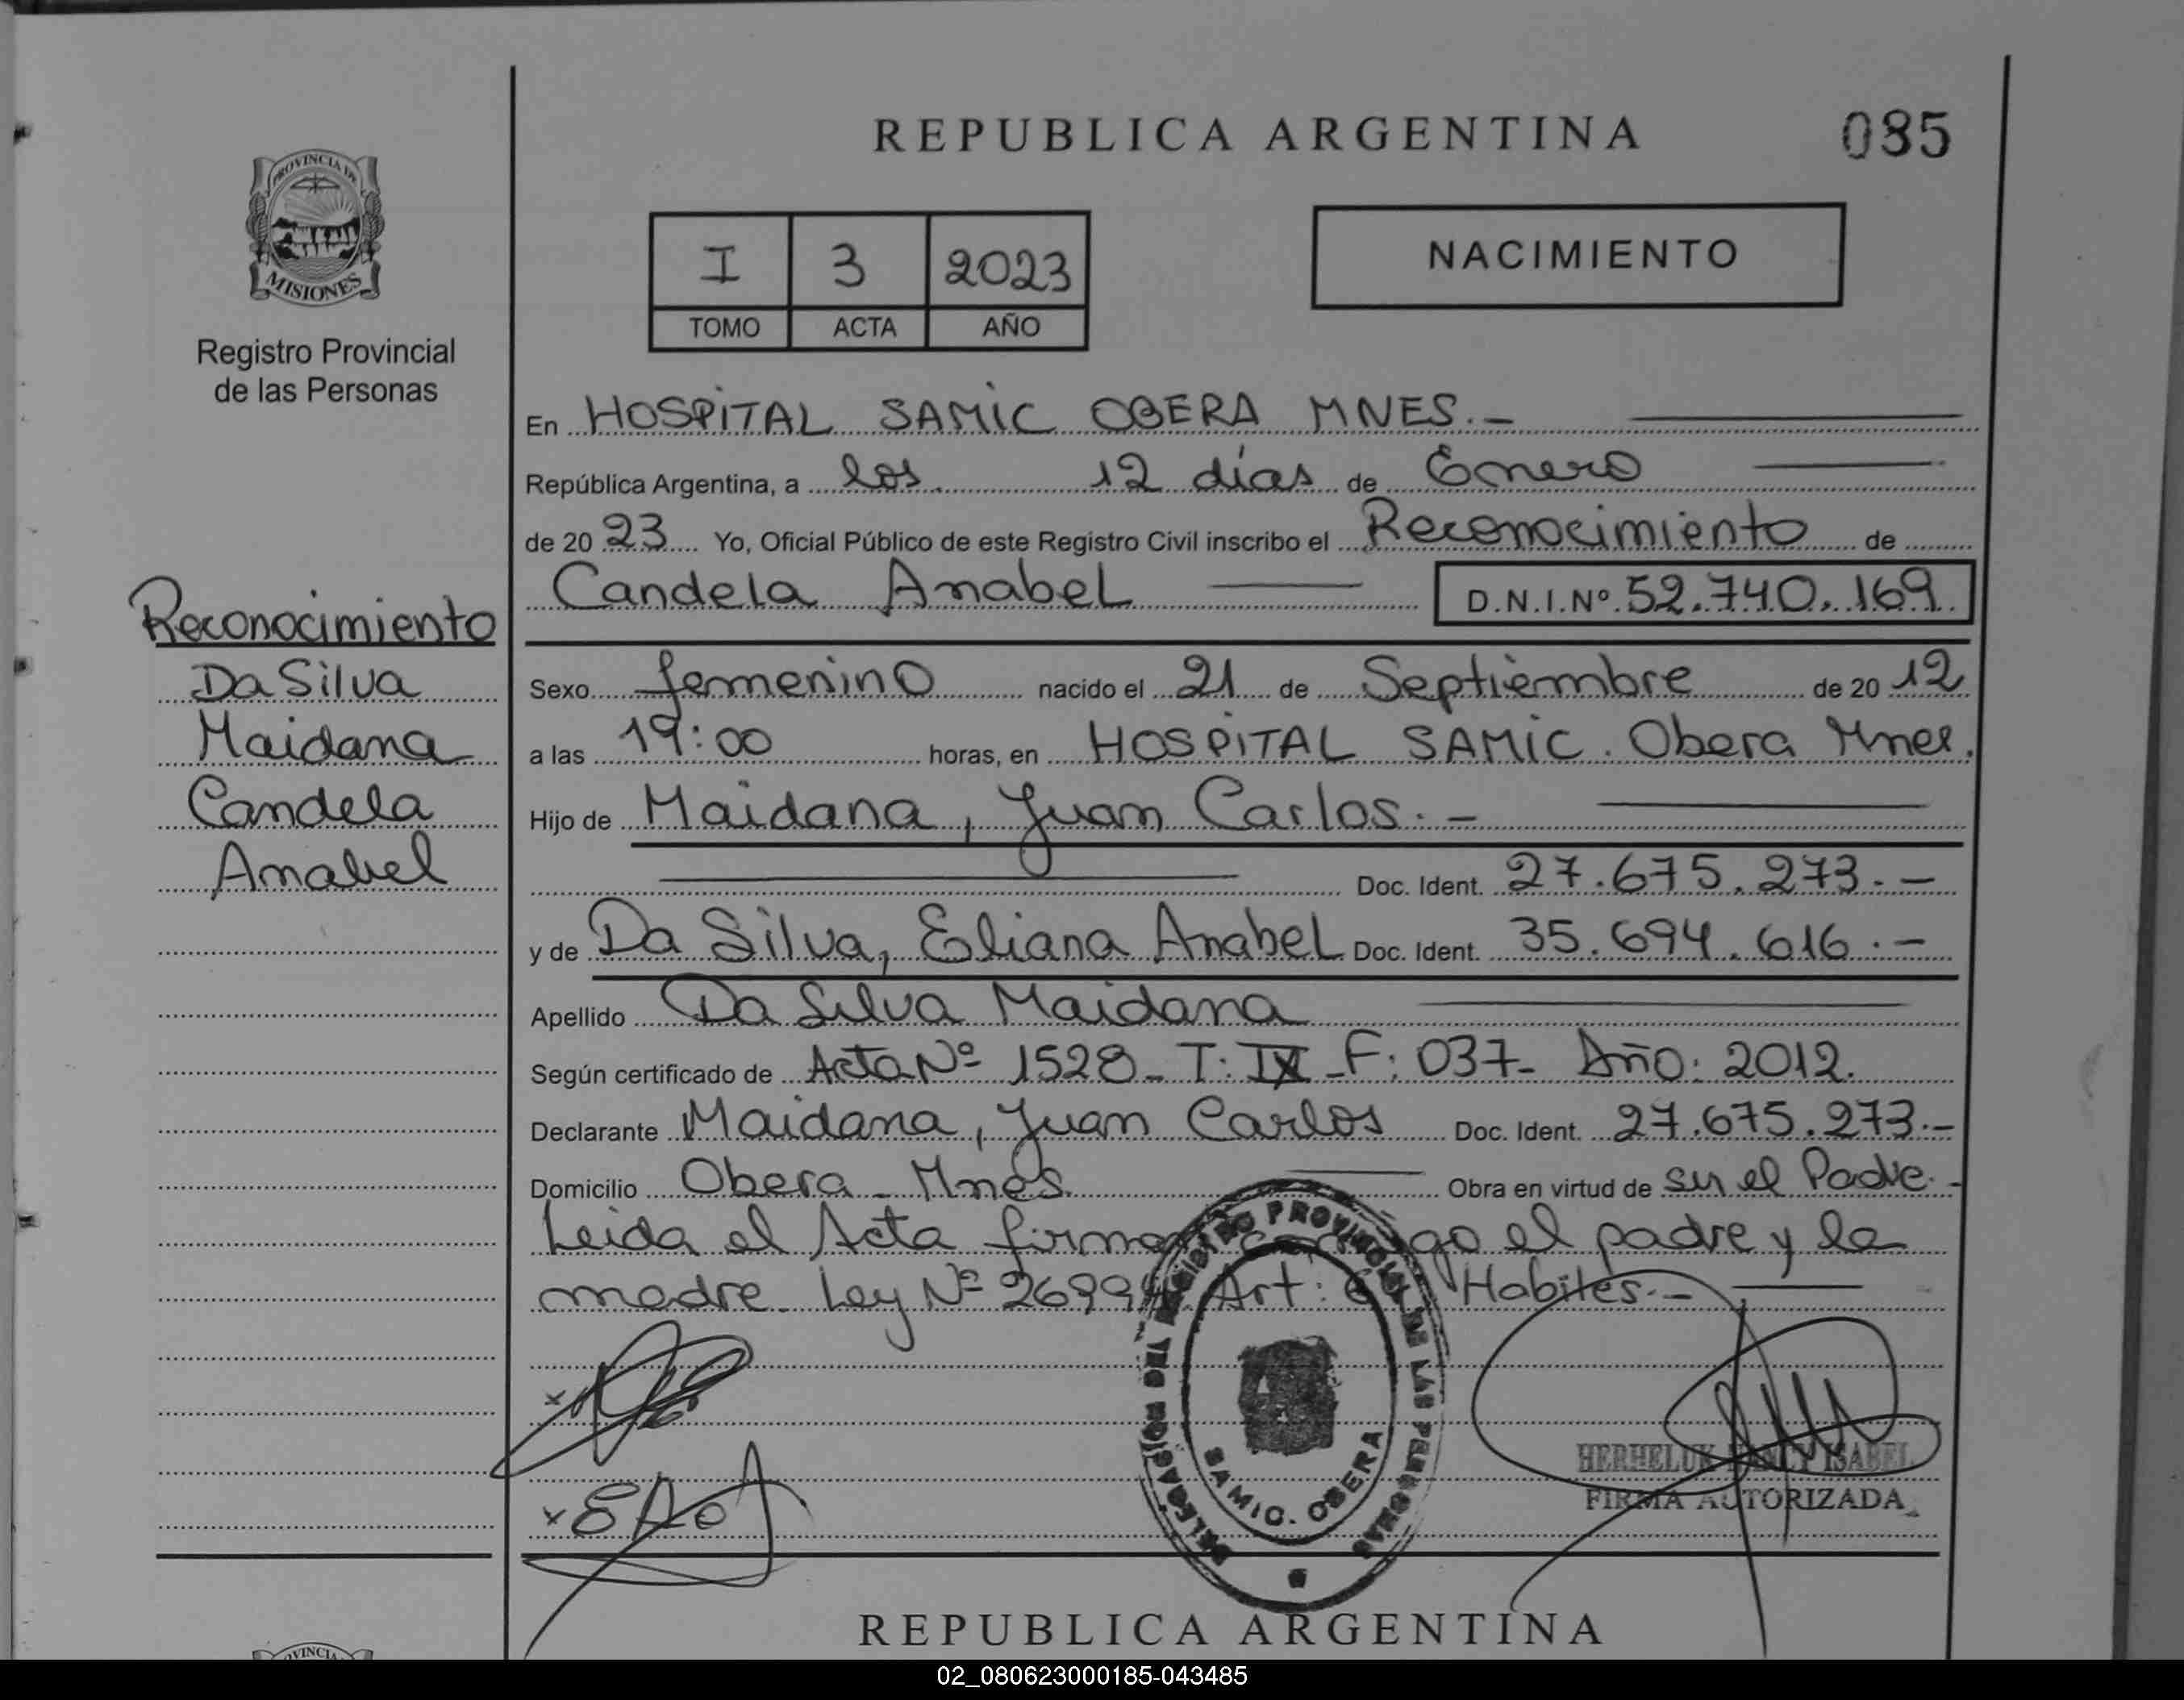 REPUBLICA ARGENTINA
035
PROVINCIA DE
MISIONES
Registro Provincial
de las Personas
I 3 2023
TOMO ACTA AÑO
NACIMIENTO
En HOSPITAL SAMIC OBERA MNES.-
República Argentina, a los 12 días de Enero
de 20 23 Yo, Oficial Público de este Registro Civil inscribo el Reconocimiento de
Candela Anabel D.N.I.Nº 52.740.169
Reconocimiento
Da Silva
Maidana
Candela
Anabel
Sexo femenino nacido el 21 de Septiembre de 20 12
a las 19:00 horas, en HOSPITAL SAMIC. Obera Mnes.
Hijo de Maidana, Juan Carlos.-
Doc. Ident. 27.675.273.-
y de Da Silva, Eliana Anabel Doc. Ident. 35.694.616.-
Apellido Da Silva Maidana
Según certificado de Acta Nº 1528- T: IX -F: 037- Año: 2012.
Declarante Maidana, Juan Carlos Doc. Ident. 27.675.273.-
Domicilio Obera - Mnes. Obra en virtud de ser el Padre.-
Leida el Acta firma el padre y la
madre. Ley Nº 26994 Art: Habiles.-
DELEGACION DEL REGISTRO PROVINCIAL DE LAS PERSONAS
SAMIC. OBERA
HERHELUK NANCY ISABEL
FIRMA AUTORIZADA
REPUBLICA ARGENTINA
02_080623000185-043485